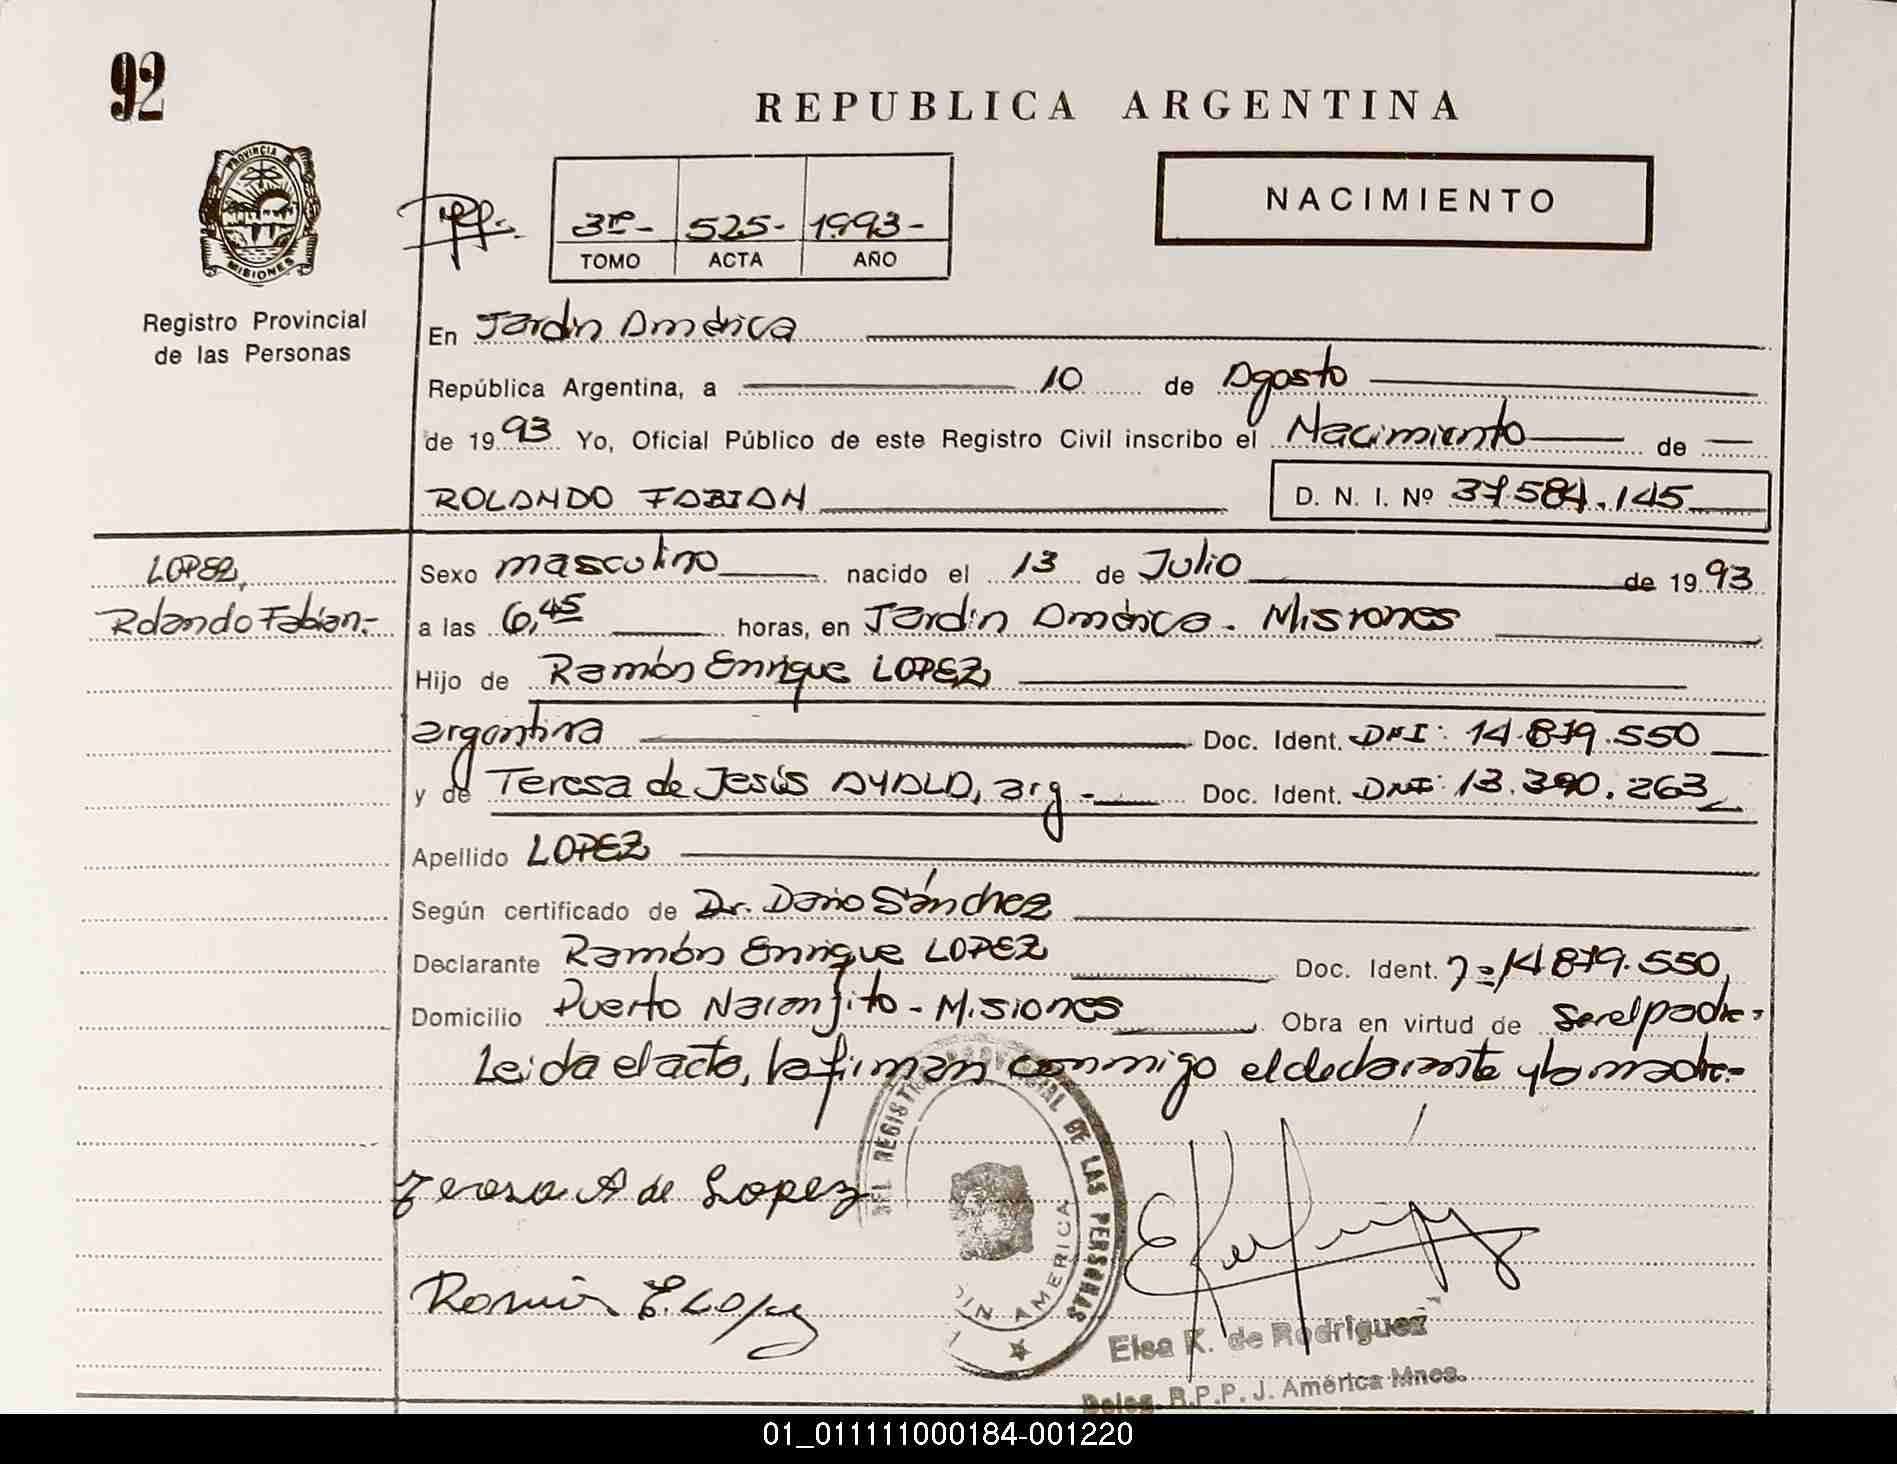 92
REPUBLICA ARGENTINA
PROVINCIA DE
MISIONES
Registro Provincial
de las Personas
3ro- 525- 1993-
TOMO ACTA AÑO
NACIMIENTO
En Jardín América
República Argentina, a 10 de Agosto
de 1993 Yo, Oficial Público de este Registro Civil inscribo el Nacimiento de
ROLANDO FABIAN D. N. I. Nº 37.584.145
LOPEZ,
Rolando Fabian.-
Sexo masculino nacido el 13 de Julio de 1993
a las 6,45 horas, en Jardín América - Misiones
Hijo de Ramón Enrique LOPEZ
argentina Doc. Ident. DNI: 14.879.550
y de Teresa de Jesús AYALA, arg - Doc. Ident. DNI: 13.390.263
Apellido LOPEZ
Según certificado de Dr. Dario Sánchez
Declarante Ramón Enrique LOPEZ Doc. Ident. 14.879.550,
Domicilio Puerto Naranjito - Misiones Obra en virtud de ser el padre-
Leida el acta, la firman conmigo el declarante y la madre.-
Teresa A de Lopez
DEL REGISTRO PROVINCIAL DE LAS PERSONAS
AMERICA
Ramón E. Lopez
Elsa K. de Rodriguez
Deleg. R.P.P. J. América Mnes.
01_011111000184-001220